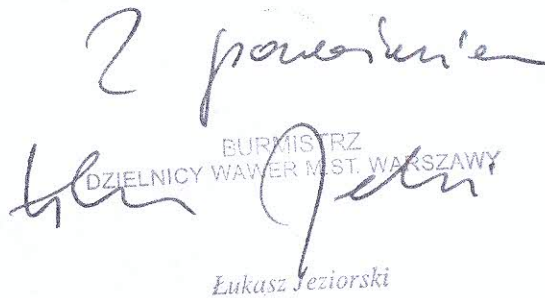 Z poważaniem
BURMISTRZ
DZIELNICY WAWER M.ST. WARSZAWY
Łukasz Jeziorski